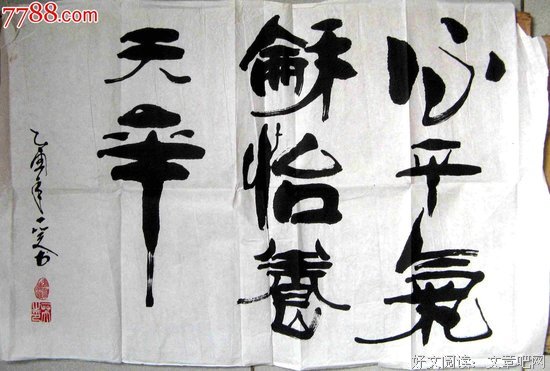 7788.com
心平氣
龢怡養
天年
乙酉年
好文阅读：文章吧网